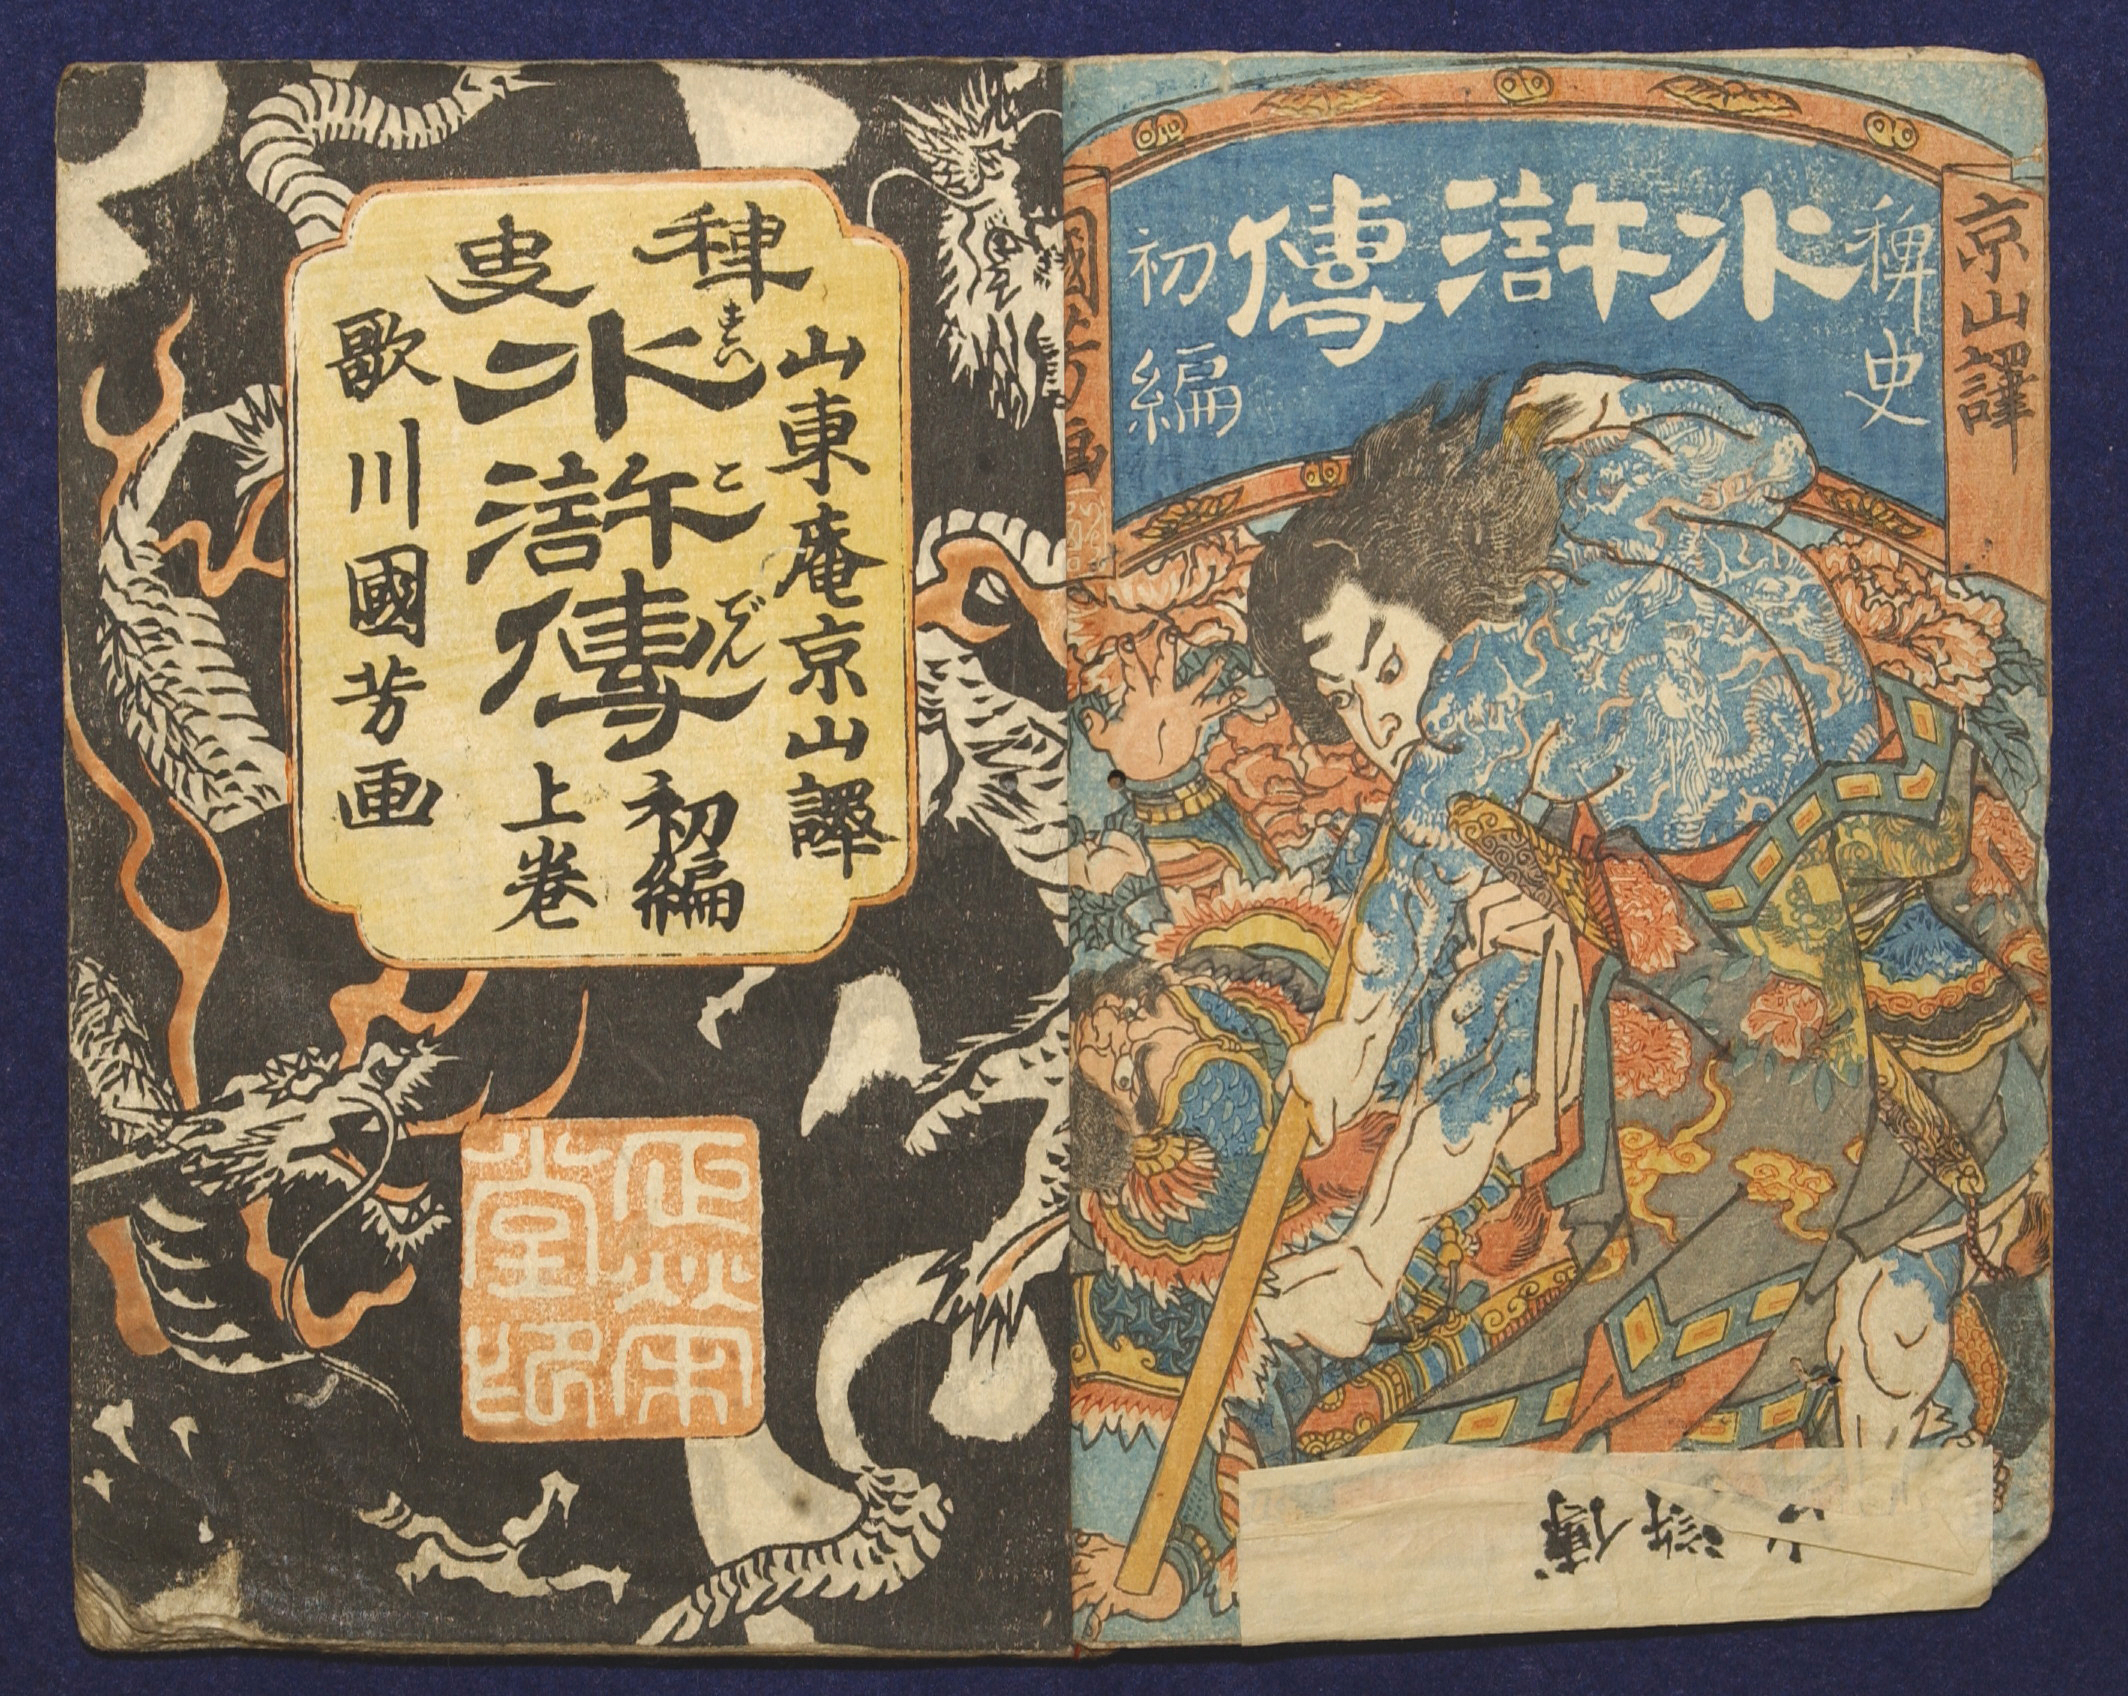 京山譯
稗史
水滸傳
初編
國芳画
山東庵京山譯
稗史
水滸傳
すいこでん
初編
上巻
歌川國芳画
水滸傳